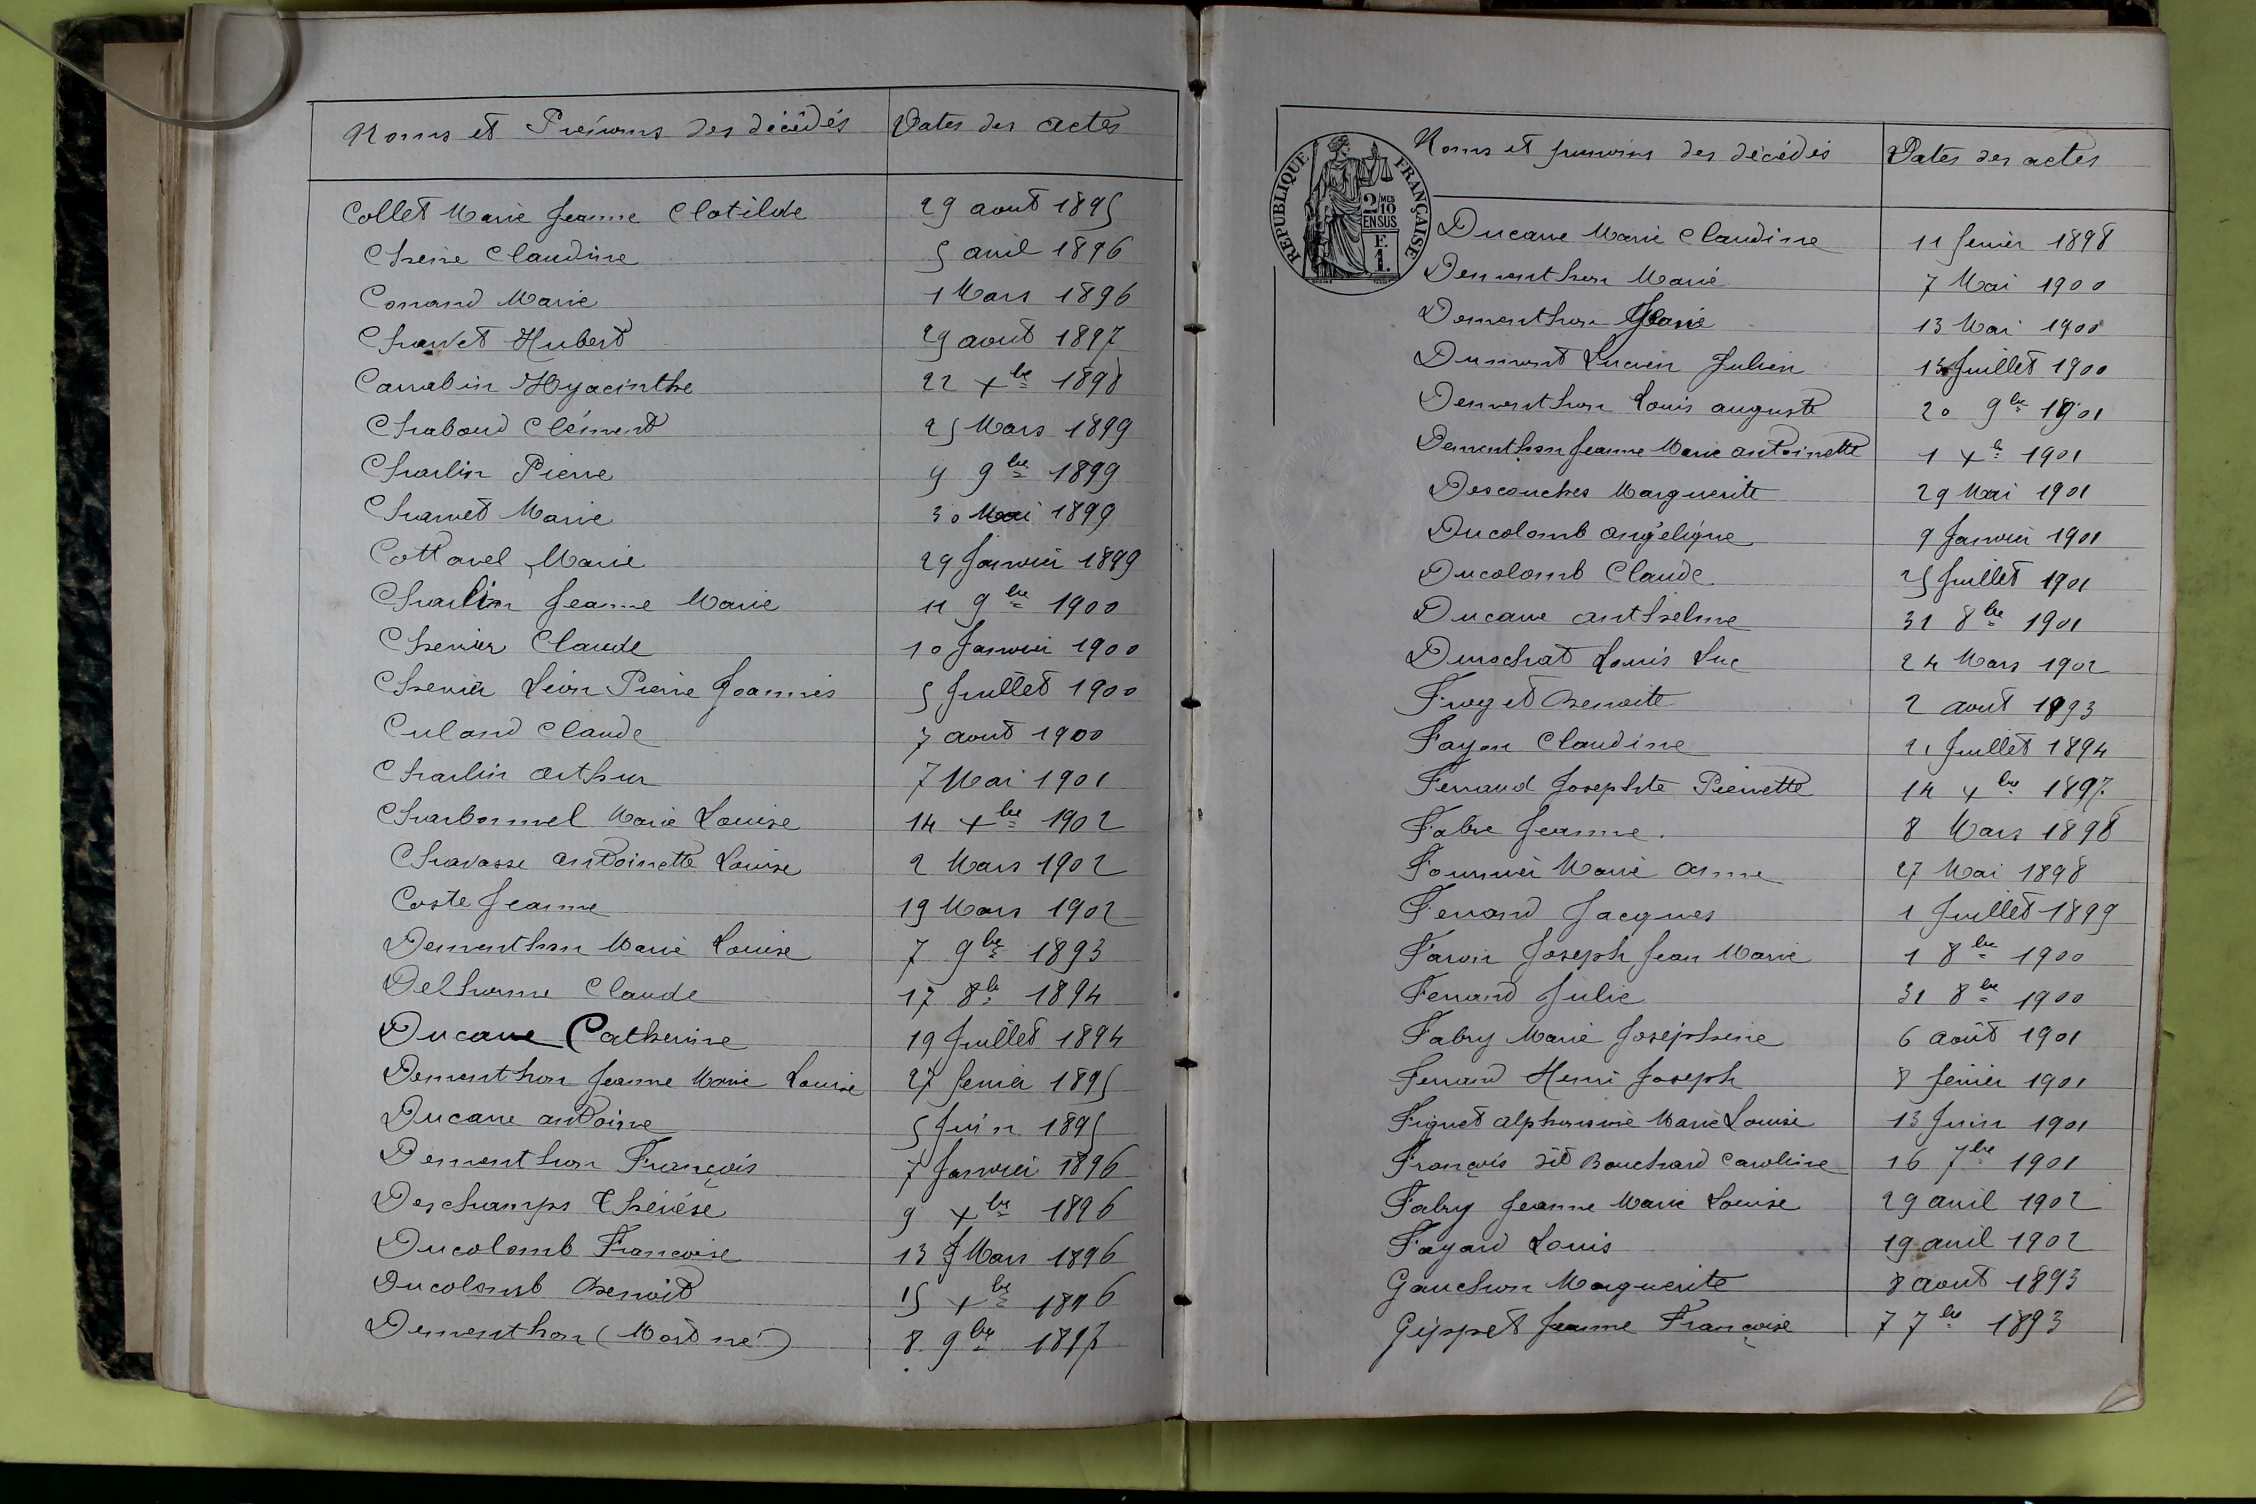 Noms et Prénoms des décédés Dates des actes
Collet Marie Jeanne Clotilde 29 aout 1895
Cheine Claudine 5 avril 1896
Conand Marie 1 Mars 1896
Charvet Hubert 29 aout 1897
Carrabin Hyacinthe 22 xbre 1898
Chaboud Clément 25 Mars 1899
Charlin Pierre 9 9bre 1899
Charvet Marie 30 Mai 1899
Cottavel Marie 29 Janvier 1899
Charlin Jeanne Marie 11 9bre 1900
Chenier Claude 10 Janvier 1900
Chenier Léon Pierre Joannès 5 Juillet 1900
Culand Claude 7 aout 1900
Charlin arthur 7 Mai 1901
Charbonnel Marie Louise 14 xbre 1902
Chavasse antoinette Louise 2 Mars 1902
Coste Jeanne 19 Mars 1902
Dementhon Marie Louise 7 9bre 1893
Delhorme Claude 17 8bre 1894
Ducarre Catherine 19 Juillet 1894
Dementhon Jeanne Marie Louise 27 fevrier 1895
Ducarre antoine 5 Juin 1895
Dementhon François 7 Janvier 1896
Deschamps Thérèse 9 xbre 1896
Ducolomb Francoise 13 Mars 1896
Ducolomb Benoit 15 xbre 1896
Dementhon (Mort né) 8 9bre 1897
REPUBLIQUE FRANÇAISE
2/10 MES
EN SUS
F.
1.
Noms et prenoms des décédés Dates des actes
Ducarre Marie Claudine 11 fevrier 1898
Dementhon Marie 7 Mai 1900
Dementhon Marie 13 Mai 1900
Dumont Lucien Julien 13 Juillet 1900
Dementhon Louis auguste 20 9bre 1901
Dementhon Jeanne Marie antoinette 1 xbre 1901
Descouches Marguerite 29 Mai 1901
Ducolomb angélique 9 Janvier 1901
Ducolomb Claude 25 Juillet 1901
Ducarre anthelme 31 8bre 1901
Durochat Louis Luc 24 Mars 1902
Froget Benoite 2 aout 1893
Fayon Claudine 21 Juillet 1894
Ferrand Josephte Pierrette 14 xbre 1897
Fabre Jeanne. 8 Mars 1898
Fournier Marie anne 27 Mai 1898
Ferrand Jacques 1 Juillet 1899
Favoin Joseph Jean Marie 1 8bre 1900
Ferrand Julie 31 8bre 1900
Fabry Marie Joséphine 6 août 1901
Ferrand Henri Joseph 8 fevrier 1901
Fignet alphonsine Marie Louise 13 Juin 1901
François dit Bouchard Caroline 16 7bre 1901
Fabry Jeanne Marie Louise 29 avril 1902
Fayard Louis 19 avril 1902
Gauchon Marguerite 8 aout 1893
Gippet Jeanne Françoise 7 7bre 1893